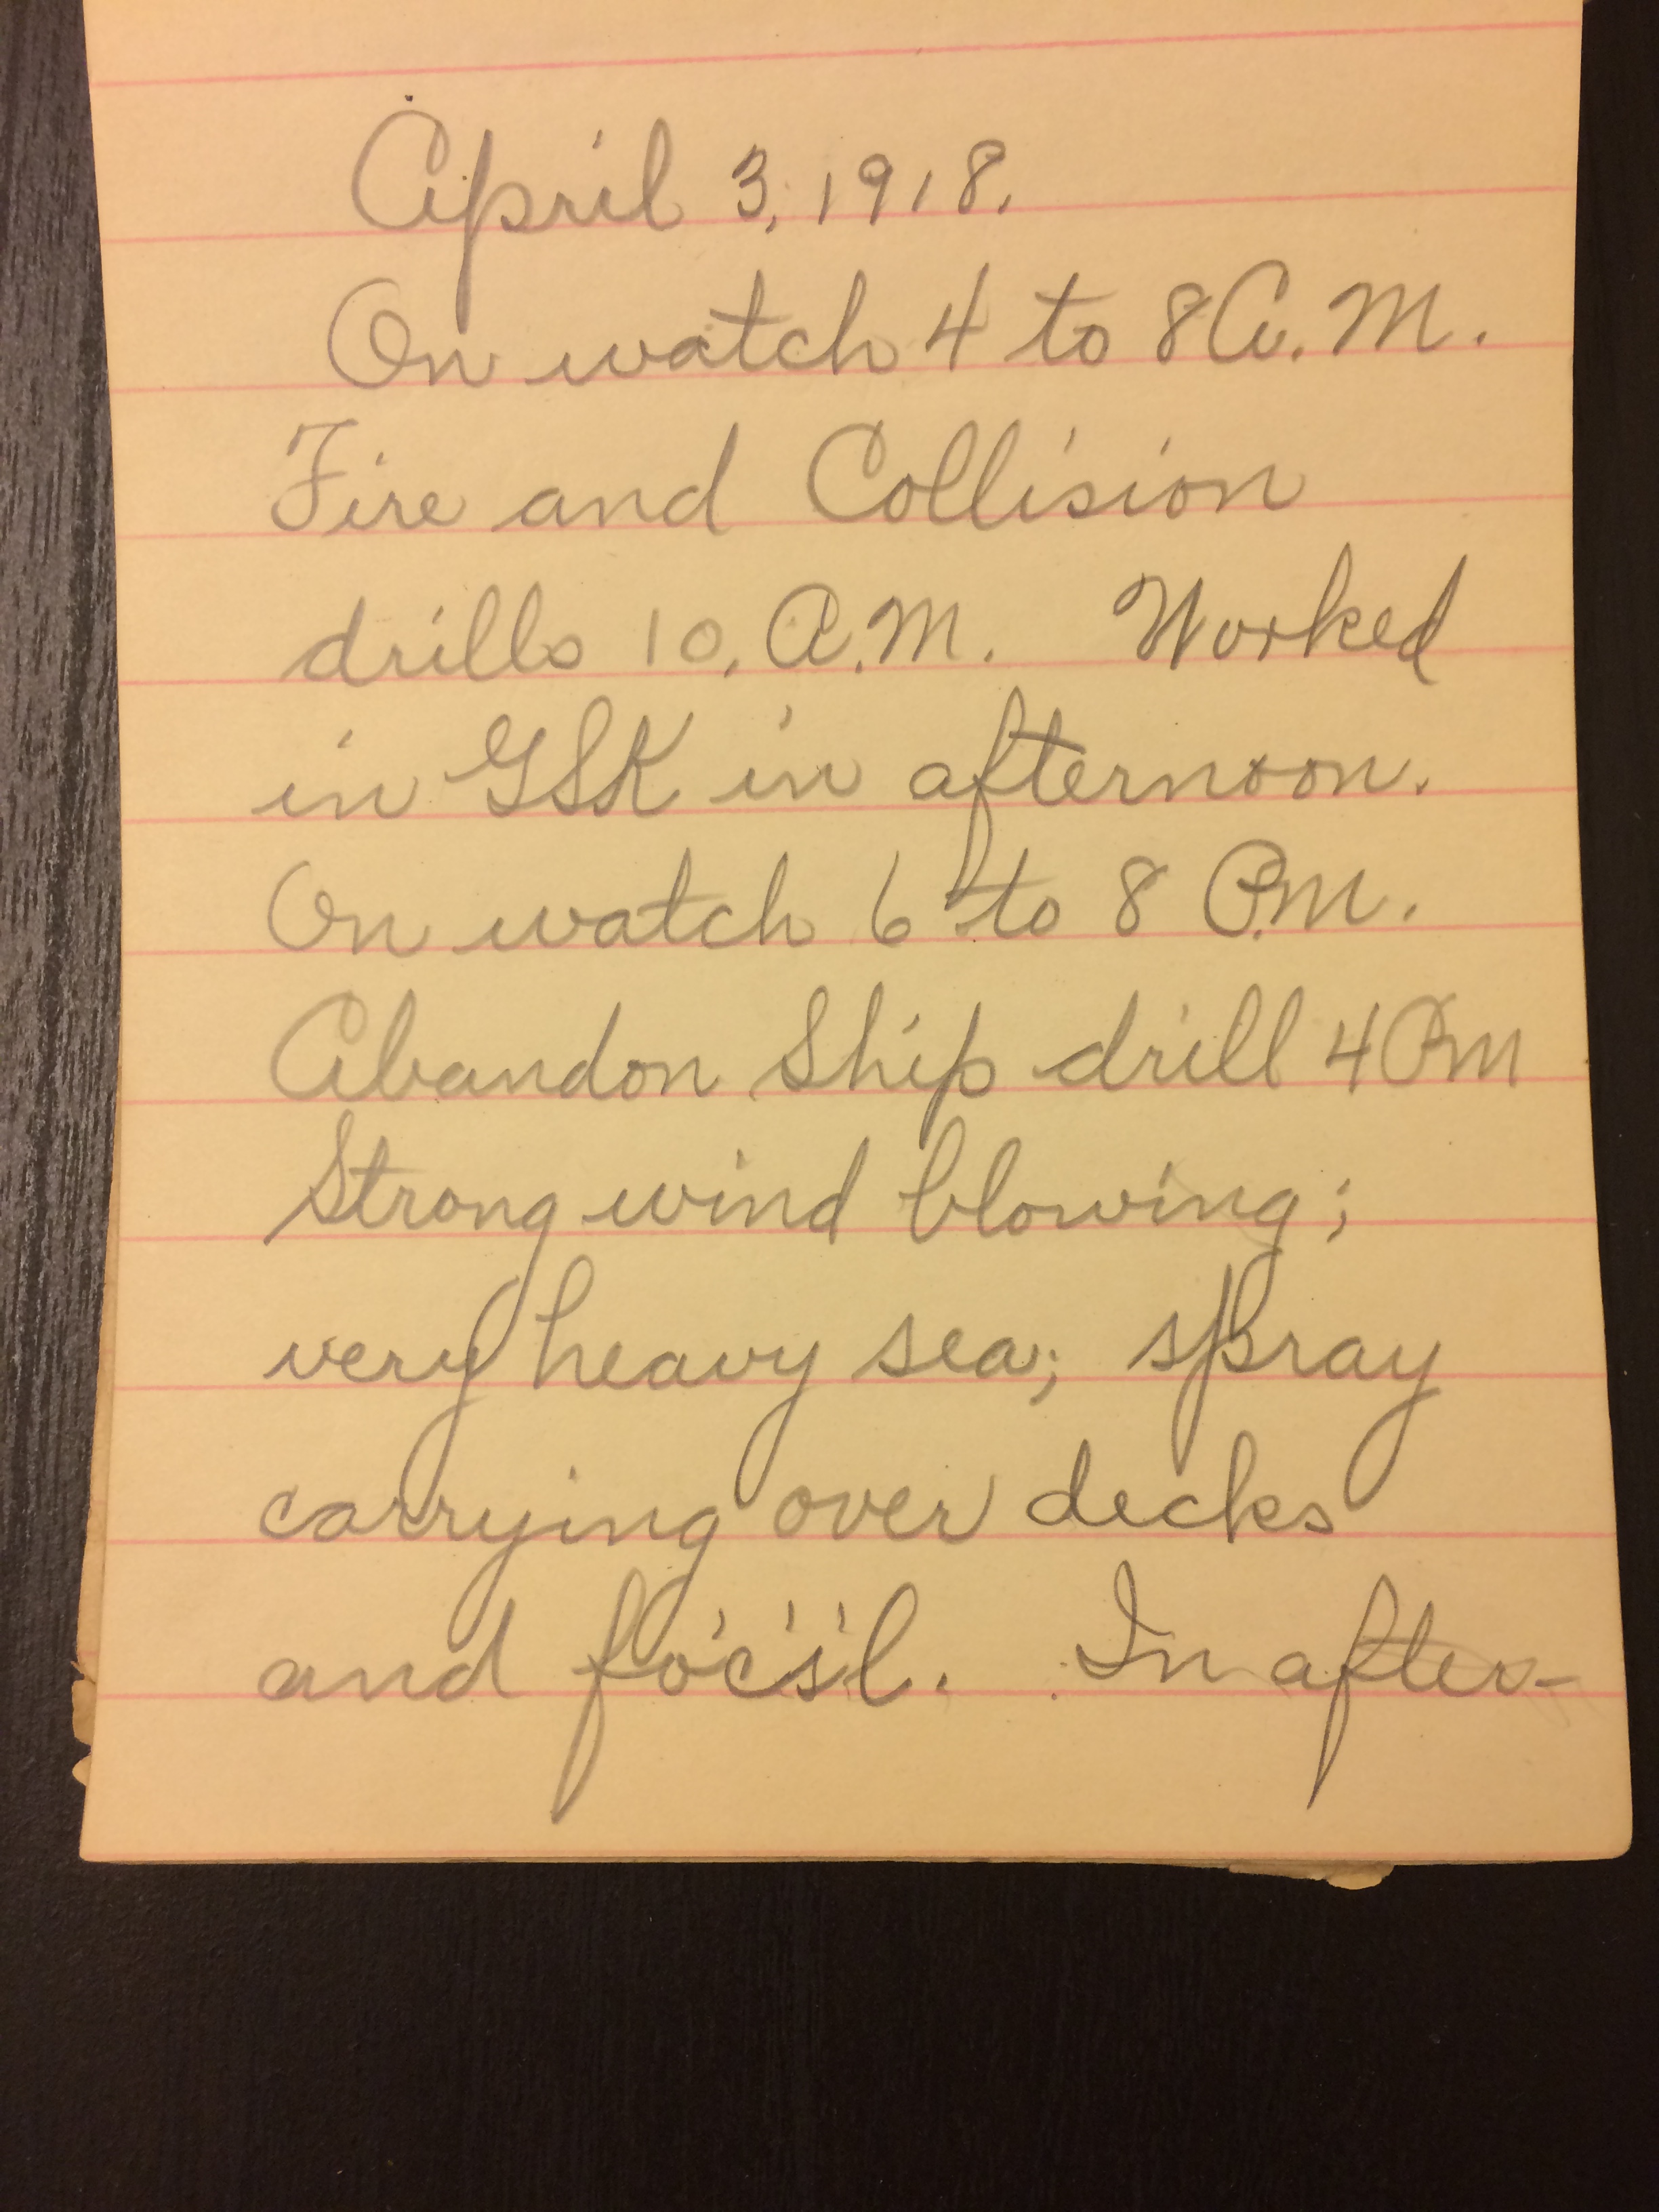 April 3, 1918.
On watch 4 to 8 A.M.
Fire and Collision
drills 10, A.M. Worked
in GSK in afternoon.
On watch 6 to 8 P.M.
Abandon Ship drill 4 PM
Strong wind blowing;
very heavy sea; spray
carrying over decks
and fo'c's'l. In after-